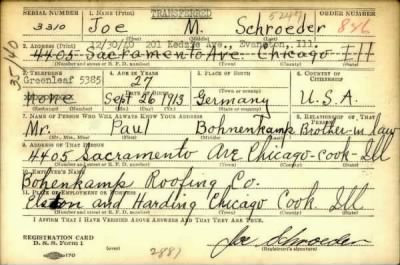 SERIAL NUMBER 1. NAME (Print) TRANSFERRED ORDER NUMBER
3310 Joe M. Schroeder 846
(First) (Middle) (Last)
35/40
12/30/40 201 Kedzie Ave., Evanston, Ill.
2. ADDRESS (Print)
4405 Sacramento Ave. Chicago Ill
(Number and street or R. F. D. number) (Town) (County) (State)
3. TELEPHONE 4. AGE IN YEARS 5. PLACE OF BIRTH 6. COUNTRY OF CITIZENSHIP
Greenleaf 5385 27
None Sept 26 1913 Germany U.S.A.
(Exchange) (Number) (Mo.) (Day) (Yr.) (State or country)
7. NAME OF PERSON WHO WILL ALWAYS KNOW YOUR ADDRESS 8. RELATIONSHIP OF THAT PERSON
Mr. Paul Bohnenkamp Brother-in law
(Mr., Mrs., Miss) (First) (Middle) (Last)
9. ADDRESS OF THAT PERSON
4405 Sacramento Ave Chicago-Cook-Ill
(Number and street or R. F. D. number) (Town) (County) (State)
10. EMPLOYER'S NAME
Bohenkamp Roofing Co.
11. PLACE OF EMPLOYMENT OR BUSINESS
Elston and Harding Chicago Cook Ill
(Number and street or R. F. D. number) (Town) (County) (State)
I AFFIRM THAT I HAVE VERIFIED ABOVE ANSWERS AND THAT THEY ARE TRUE.
REGISTRATION CARD
D. S. S. Form 1 Joe Schroeder
(Registrant's signature)
2881